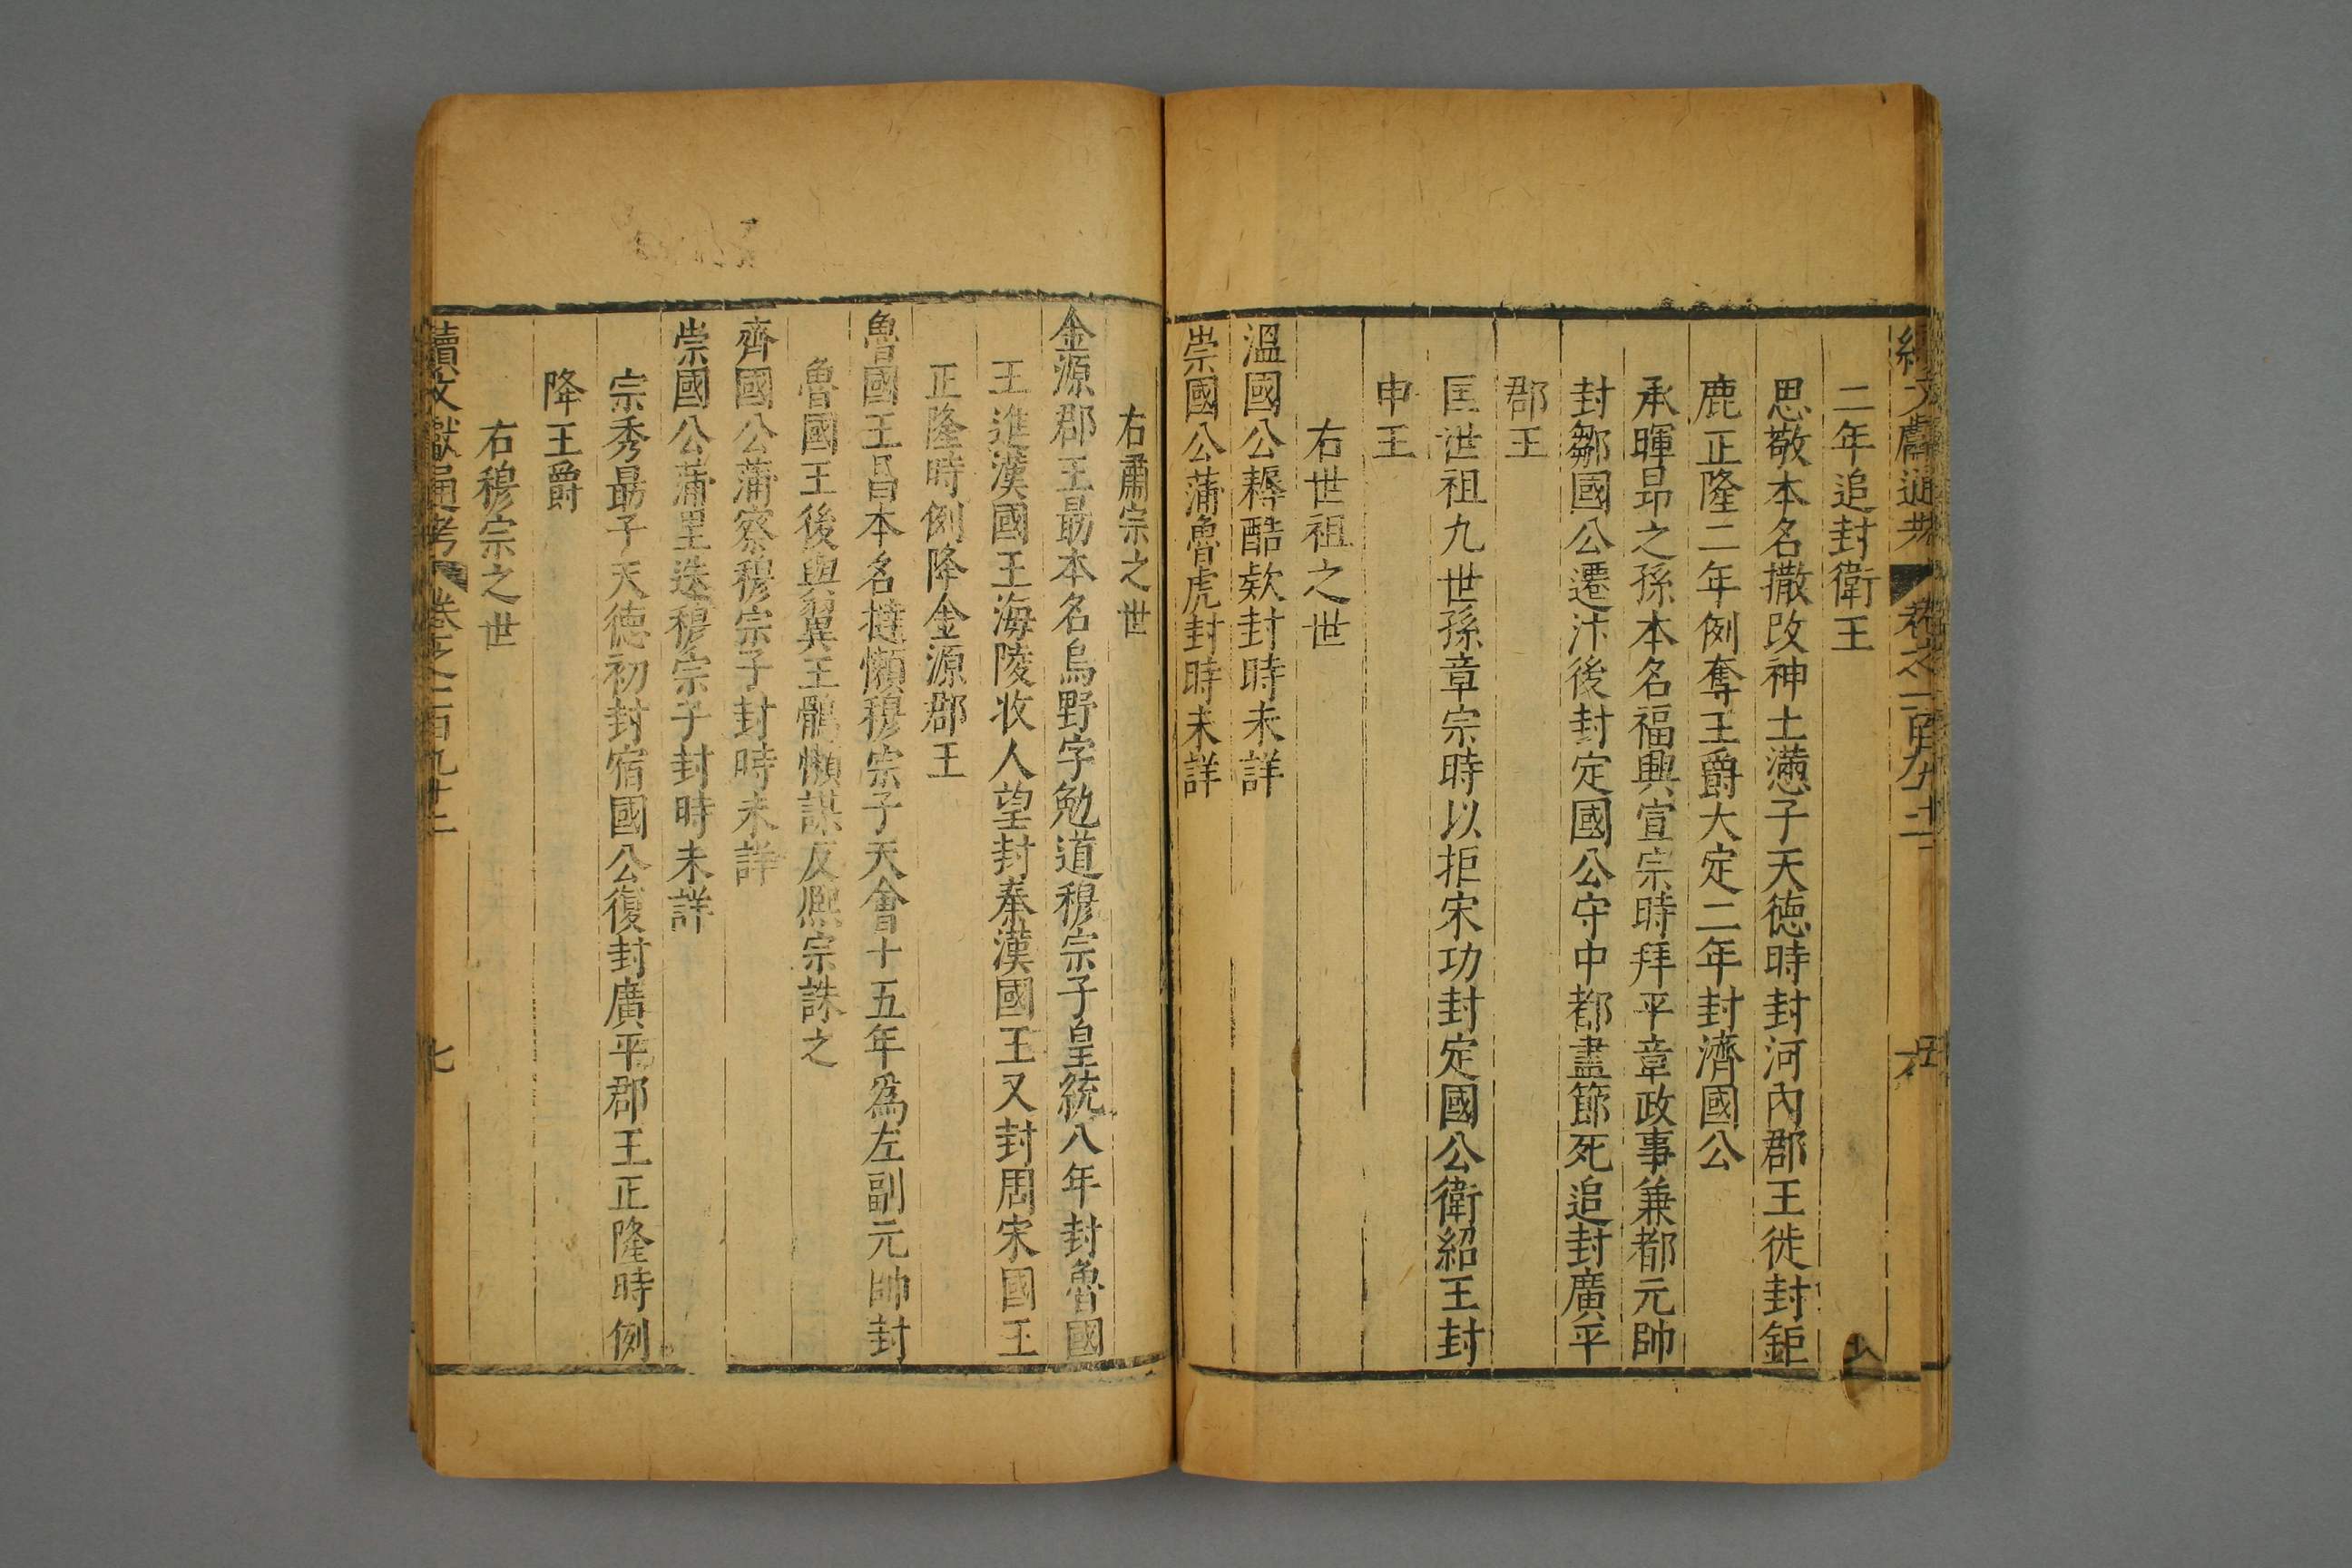 續文獻通考 卷之二百九十二 六
二年追封衛王
思敬本名撒改神土懣子天德時封河內郡王徙封鉅
鹿正隆二年例奪王爵大定二年封濟國公
承暉昂之孫本名福興宣宗時拜平章政事兼都元帥
封鄒國公遷汴後封定國公守中都盡節死追封廣平
郡王
匡世祖九世孫章宗時以拒宋功封定國公衛紹王封
申王
右世祖之世
溫國公耨酷欵封時未詳
崇國公蒲魯虎封時未詳
右肅宗之世
金源郡王勗本名烏野字勉道穆宗子皇統八年封魯國
王進漢國王海陵收人望封秦漢國王又封周宋國王
正隆時例降金源郡王
魯國王昌本名撻懶穆宗子天會十五年爲左副元帥封
魯國王後與翼王鶻懶謀反熙宗誅之
齊國公蒲察穆宗子封時未詳
崇國公蒲里迭穆宗子封時未詳
宗秀勗子天德初封宿國公復封廣平郡王正隆時例
降王爵
右穆宗之世
續文獻通考 卷之二百九十二 七